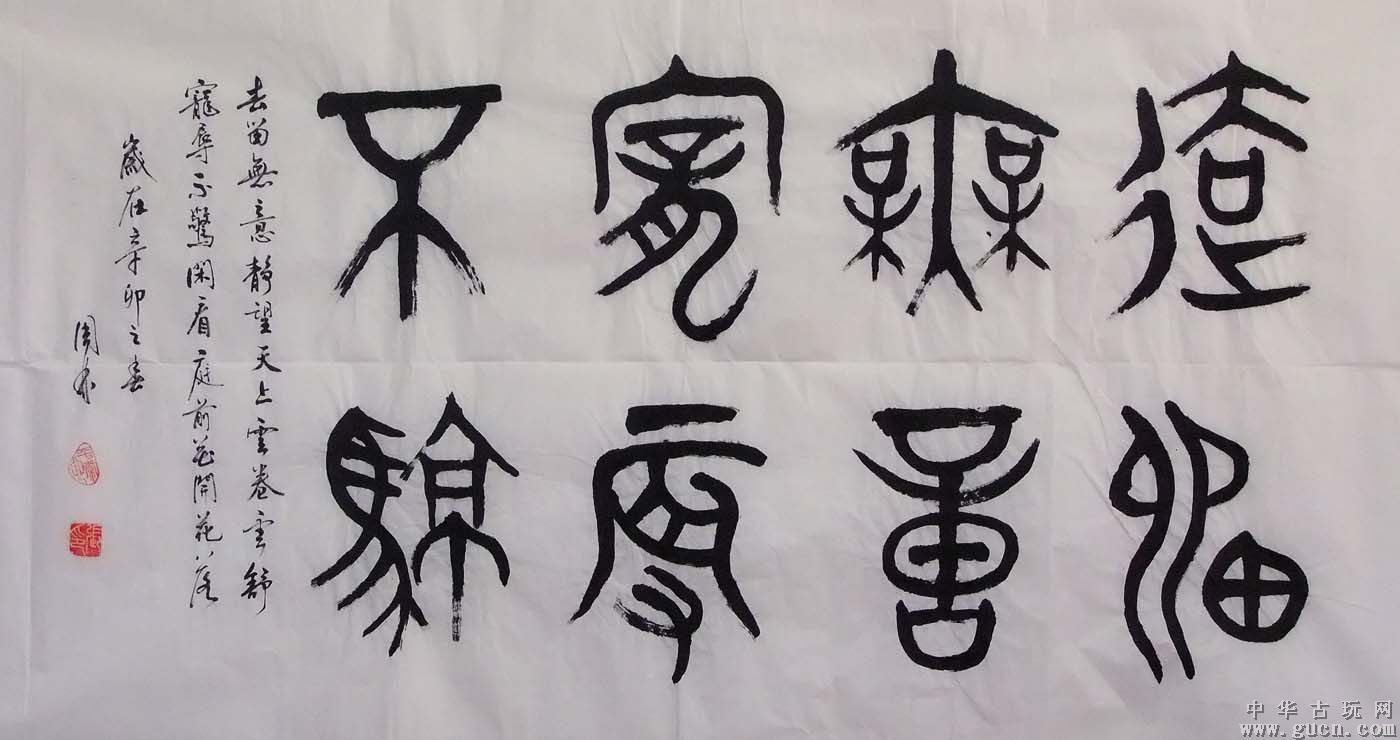 去留
無意
寵辱
不驚
去留無意靜望天上雲卷雲舒
寵辱不驚閑看庭前花開花落
歲在辛卯之春
中华古玩网
www.gucn.com